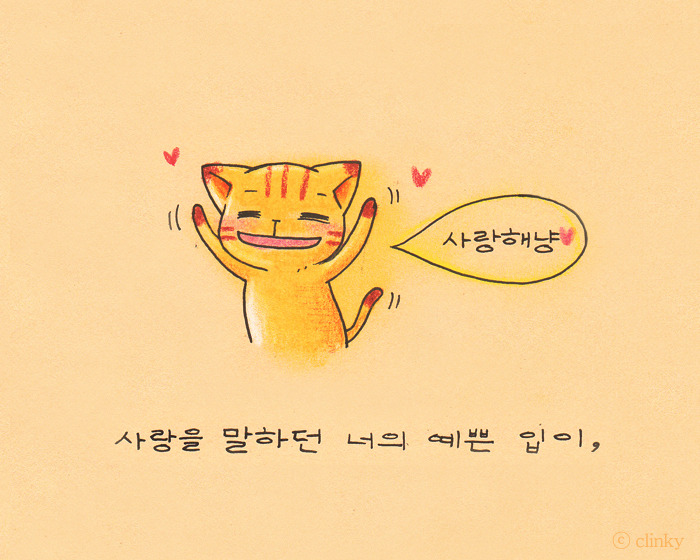 사랑해냥
사랑을 말하던 너의 예쁜 입이,
ⓒ clinky